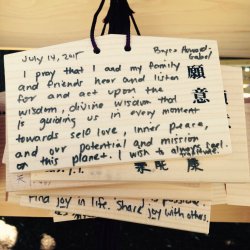 July 14, 2015
I pray that I and my family
and friends hear and listen
for and act upon the
wisdom, divine wisdom that
is guiding us in every moment
towards self love, inner peace,
and our potential and mission
on this planet. I wish to always feel
願意
Find joy in life. Share joy with others.